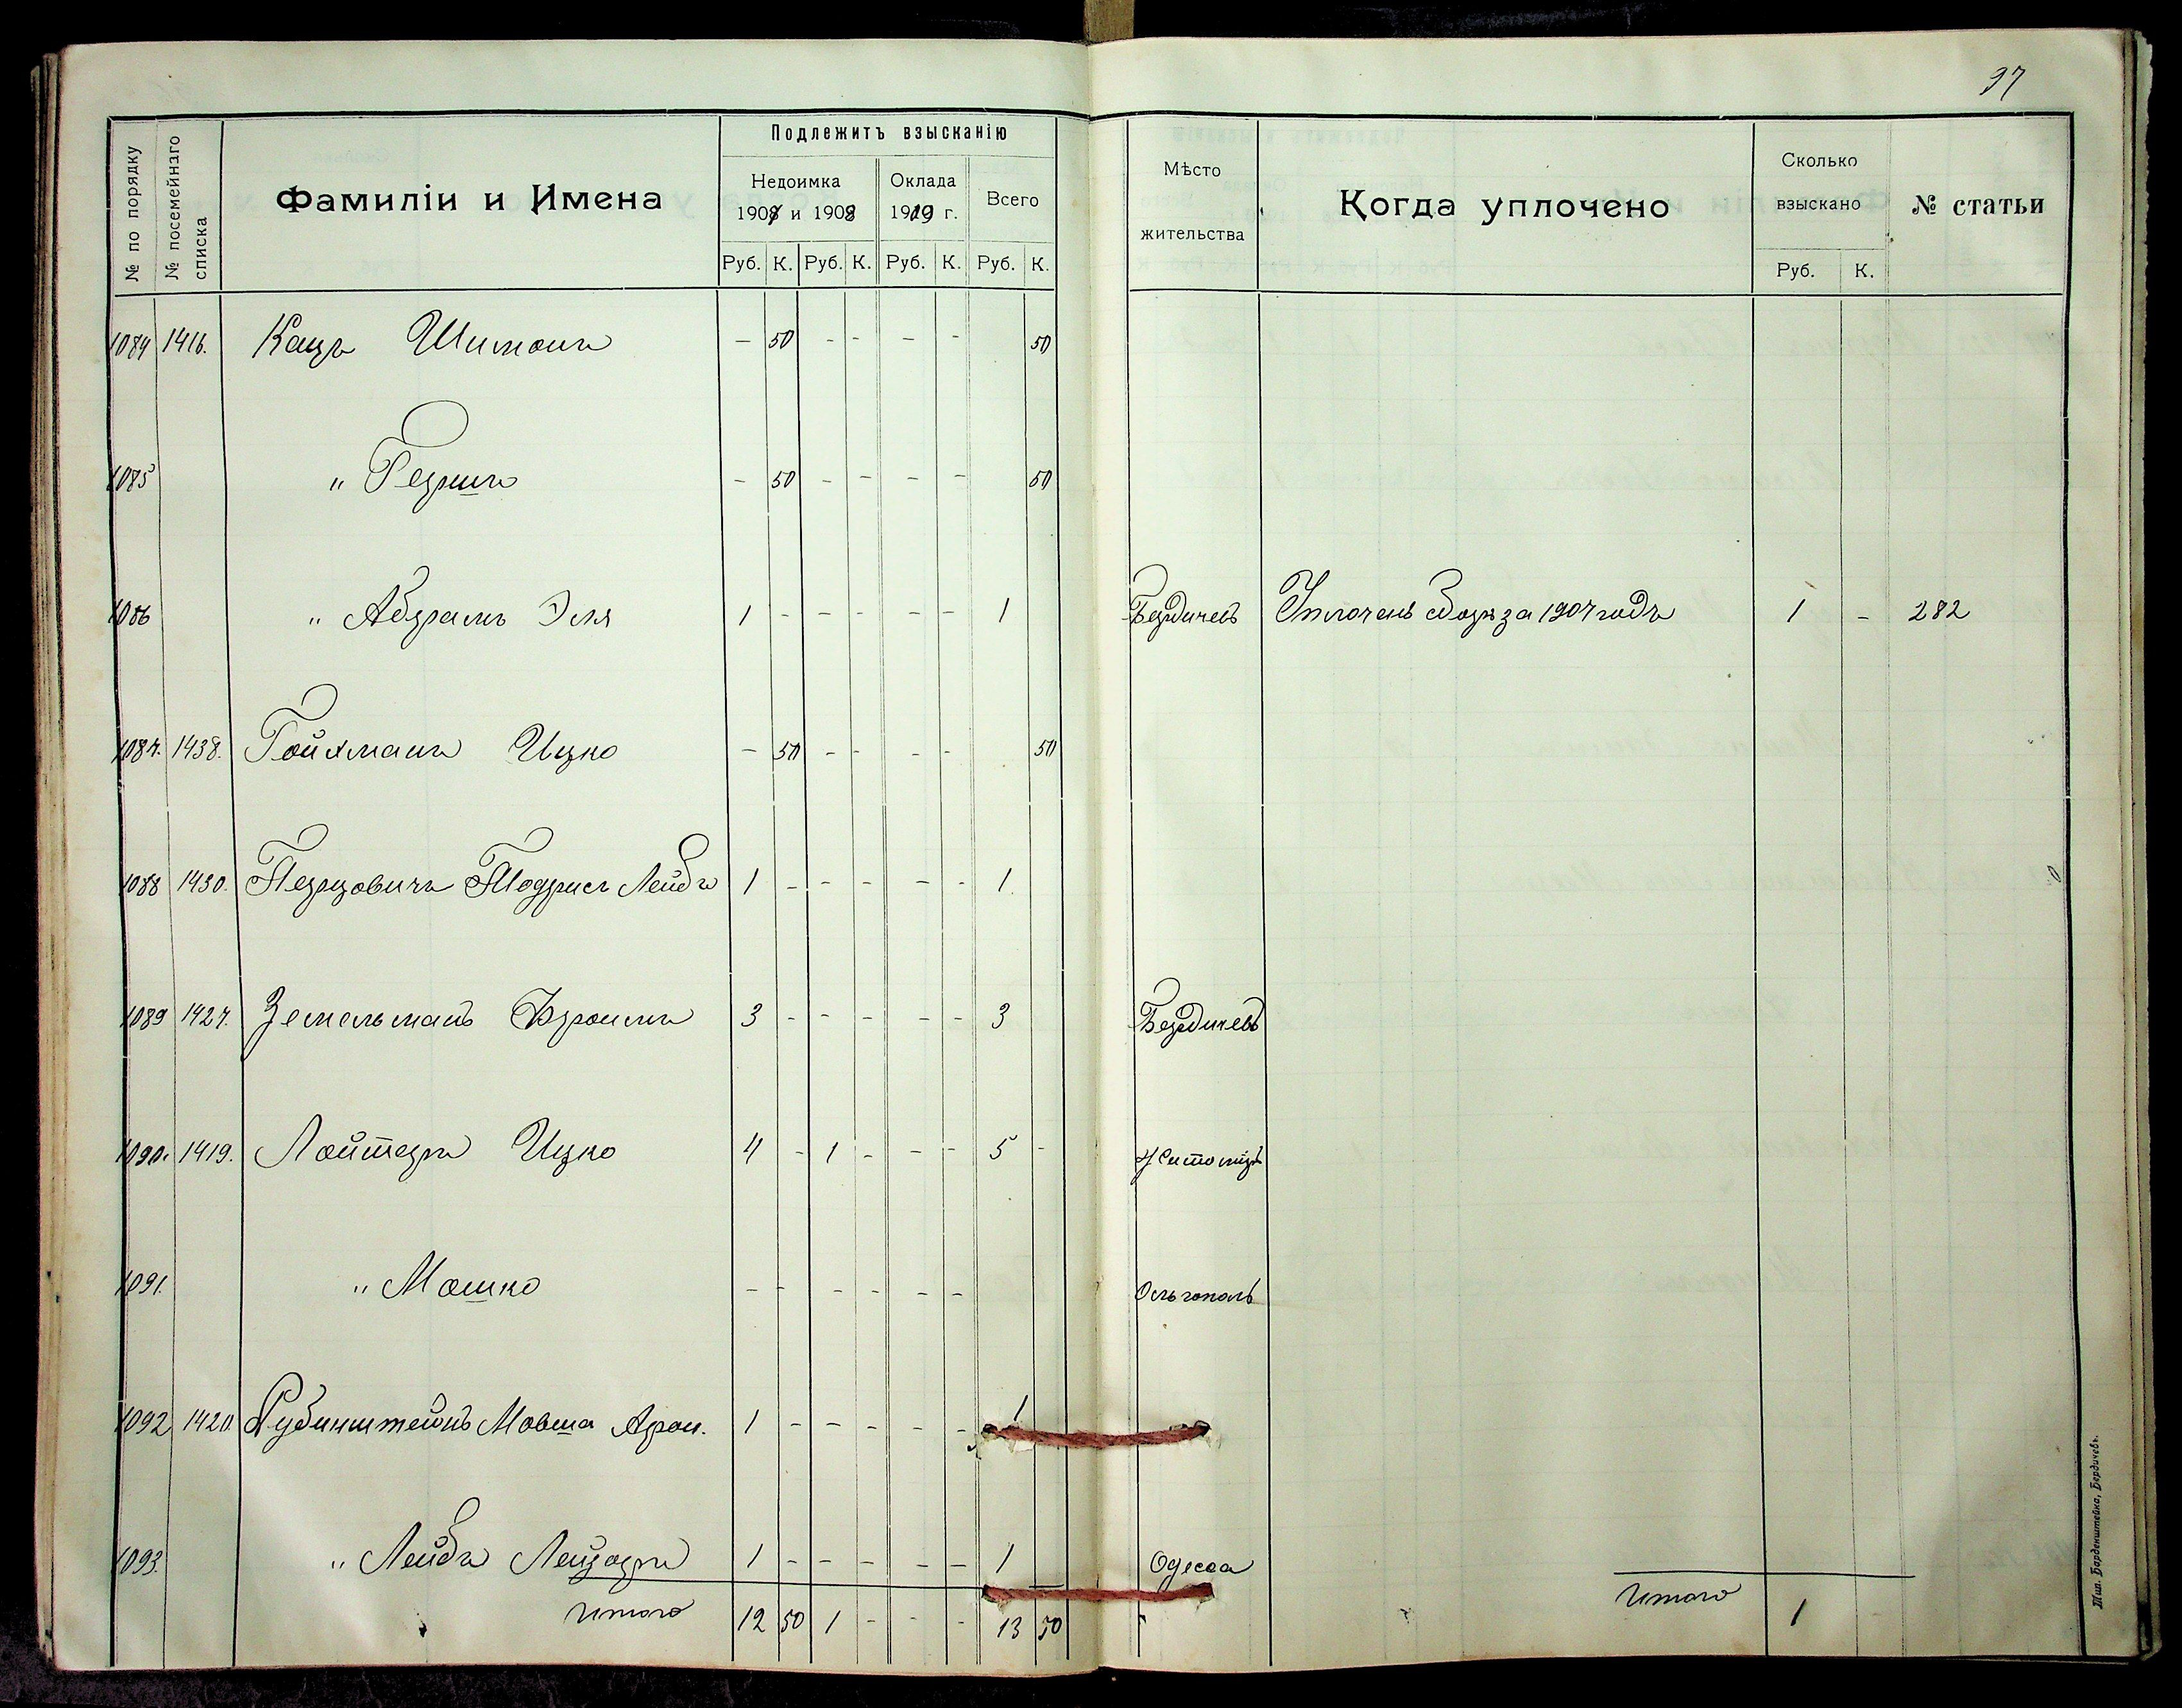 97
№ по порядку
№ посемейнаго списка
Фамиліи и Имена
Подлежитъ взысканію
Недоимка
1907 и 1908
Оклада
1909 г.
Всего
Руб. К. Руб. К. Руб. К. Руб. К.
Мѣсто
жительства
Когда уплочено
Сколько
взыскано
Руб. К.
№ статьи
1084 1416. Кацъ Шимонъ - 50 - - - - 50
1085 " Гершъ - 50 - - - - 50
1086 " Абрамъ Эля 1 - - - - - 1 Бердичевъ Уплоченъ сборъ за 1907 годъ 1 - 282
1087. 1438. Гойхманъ Ицко - 50 - - - - 50
1088 1430. Перцовичъ Тодрисъ Лейбъ 1 - - - - - 1.
1089 1427. Земельманъ Фроимъ 3 - - - - - 3 Бердичевъ
1090. 1419. Лойтеръ Ицко 4 - 1 - - - 5 - Житоміръ
1091. " Мошко - - - - - - Ольгополь
1092 1420. Рубинштейнъ Мовша Арон. 1 - - - - - 1
1093. " Лейбъ Лейзоръ 1 - - - - - 1 Одесса
Итого 12 50 1 - - - 13 50
Итого 1
Тип. Барденштейна, Бердичевъ.